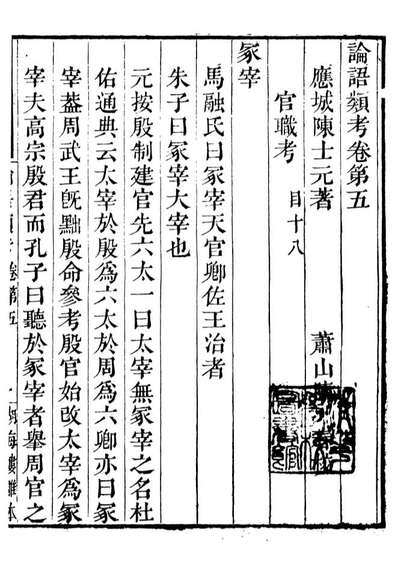 論語類考卷第五
應城陳士元著 蕭山
官職考 目十八
冢宰
馬融氏曰冢宰天官卿佐王治者
朱子曰冢宰大宰也
元按殷制建官先六太一曰太宰無冢宰之名杜
佑通典云太宰於殷爲六太於周爲六卿亦曰冢
宰葢周武王旣黜殷命參考殷官始改太宰爲冢
宰夫高宗殷君而孔子曰聽於冢宰者舉周官之
卷第五
湖海樓雕本